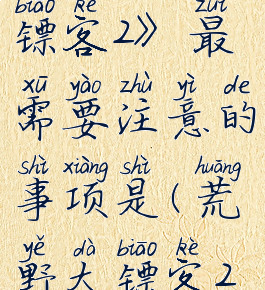 biāo kè zuì
镖客2》最
xū yào zhù yì de
需要注意的
shì xiàng shì huāng
事项是(荒
yě dà biāo kè
野大镖客2